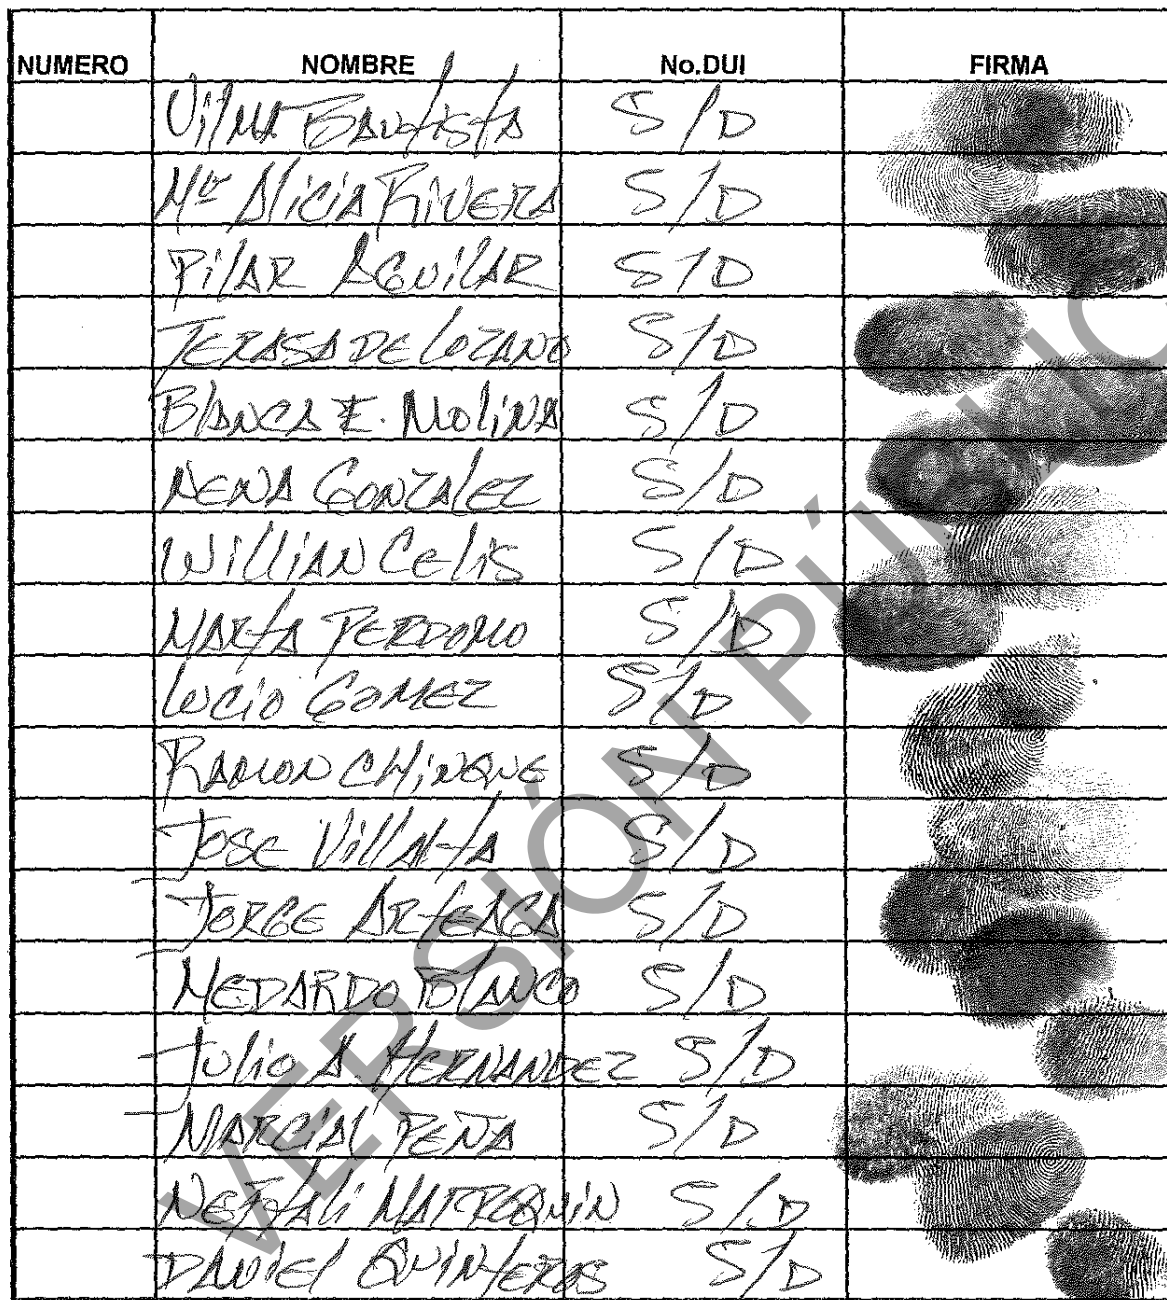 NUMERO NOMBRE No.DUI FIRMA
Vilma Bautista S/D
Mª Alicia Rivera S/D
Pilar Aguilar S/D
Terasa de Lozano S/D
Blanca E. Molina S/D
Nena Gonzalez S/D
Willian Celis S/D
Marta Perdomo S/D
Lucio Gomez S/D
Ramon Chinque S/D
Jose Villalta S/D
Jorge Arteaga S/D
Medardo Blanco S/D
Julio A. Hernandez S/D
Marcial Peña S/D
Neftali Marroquin S/D
Daniel Quinteros S/D
VERSIÓN PÚBLIC